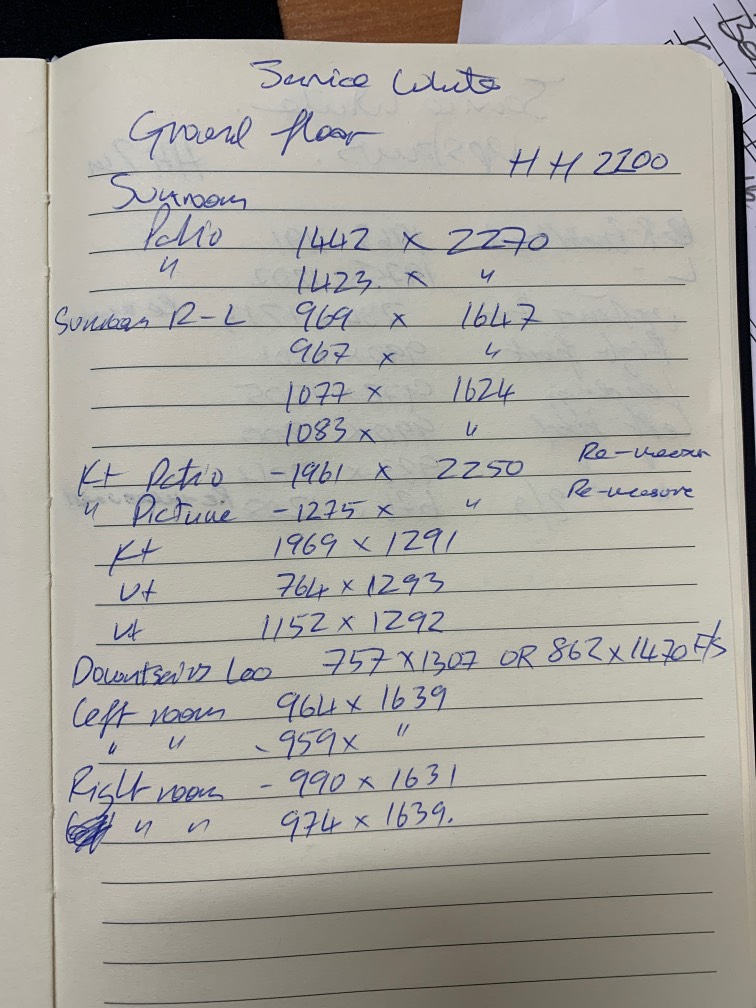 White
Ground floor
HH 2200
Sunroom
Patio 1442 x 2270
" 1423. x "
Sunroom R-L 969 x 1647
967 x "
1077 x 1624
1083 x "
Kt Patio - 1961 x 2250 Re-measure
" Picture - 1275 x " Re-measure
Kt 1969 x 1291
Ut 764 x 1293
Ut 1152 x 1292
Downstairs Loo 757 x 1307 OR 862 x 1470 F/S
Left room 964 x 1639
" " - 959 x "
Right room - 990 x 1631
" " 974 x 1639.